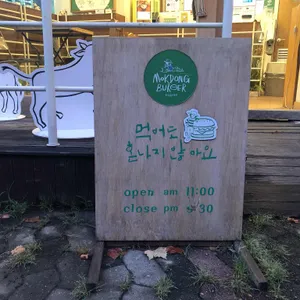 MOKDONG
BURGER
먹어도
혼나지 않아요
open am 11:00
close pm 8:30